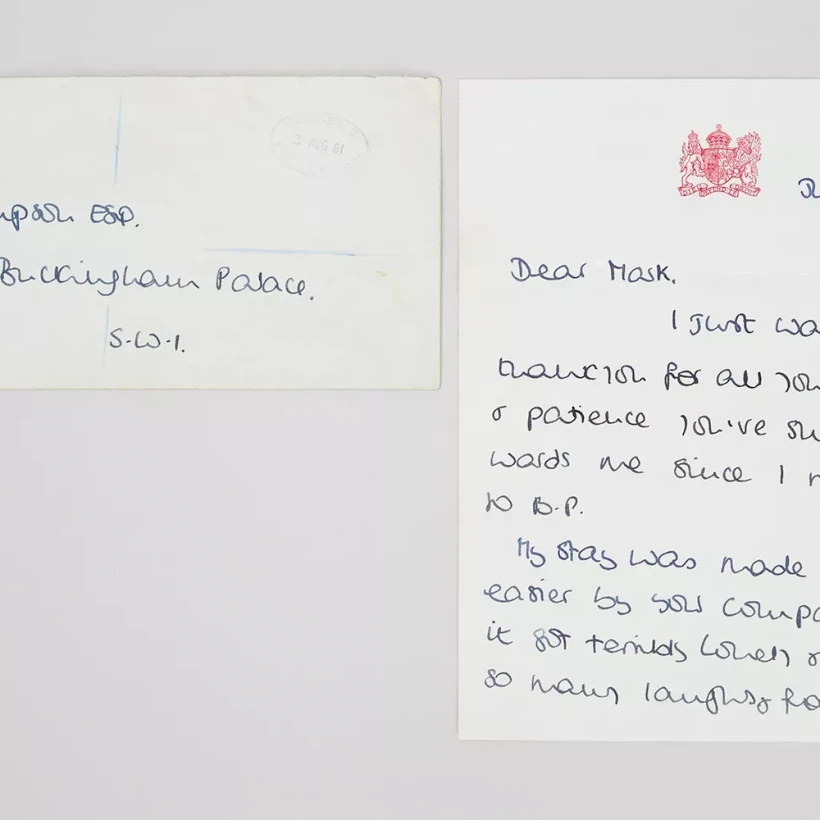 3 AUG 81
mpson ESQ.
Buckingham Palace.
S.W.1.
Dear Mark.
I Just wa
thank you for all you
& patience you've sh
wards me since I m
to B.P.
My stay was made
easier by your compa
it got terribly lonely
so many laughs & fo